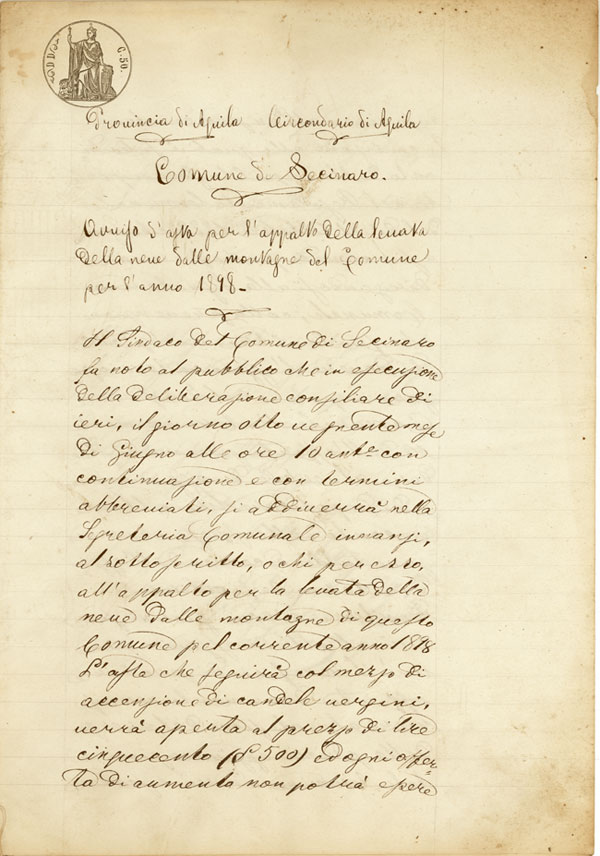 C. 50.
Provincia di Aquila Circondario di Aquila
Comune di Secinaro.
Avviso d'asta per l'appalto della levata
della neve dalle montagne del Comune
per l'anno 1898_
Il Sindaco del Comune di Secinaro
fa noto al pubblico che in esecuzione
della deliberazione consiliare di
ieri, il giorno otto vegnente mese
di Giugno alle ore 10 ant.e con
continuazione e con termini
abbreviati, si addiverrà nella
Segreteria Comunale innanzi,
al sottoscritto, o chi per esso,
all'appalto per la levata della
neve dalle montagne di questo
Comune pel corrente anno 1898
L'asta che seguirà col mezzo di
accensione di candele vergini,
verrà aperta al prezzo di lire
cinquecento (£ 500) ed ogni offer-
ta di aumento non potrà essere